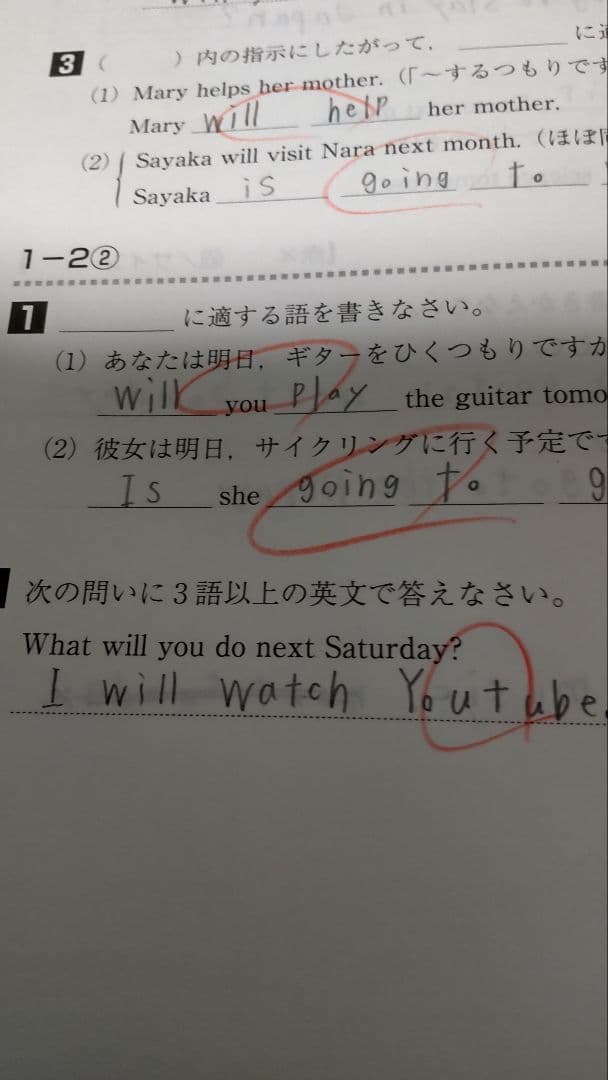 3 ( ) 内の指示にしたがって， ________ に
(1) Mary helps her mother. (「～するつもりです
Mary will help her mother.
(2) Sayaka will visit Nara next month. (ほぼ同
Sayaka is going to
1－2②
1 ________ に適する語を書きなさい。
(1) あなたは明日，ギターをひくつもりですか
will you play the guitar tomo
(2) 彼女は明日，サイクリングに行く予定で
Is she going to g
次の問いに３語以上の英文で答えなさい。
What will you do next Saturday?
I will watch Youtube.